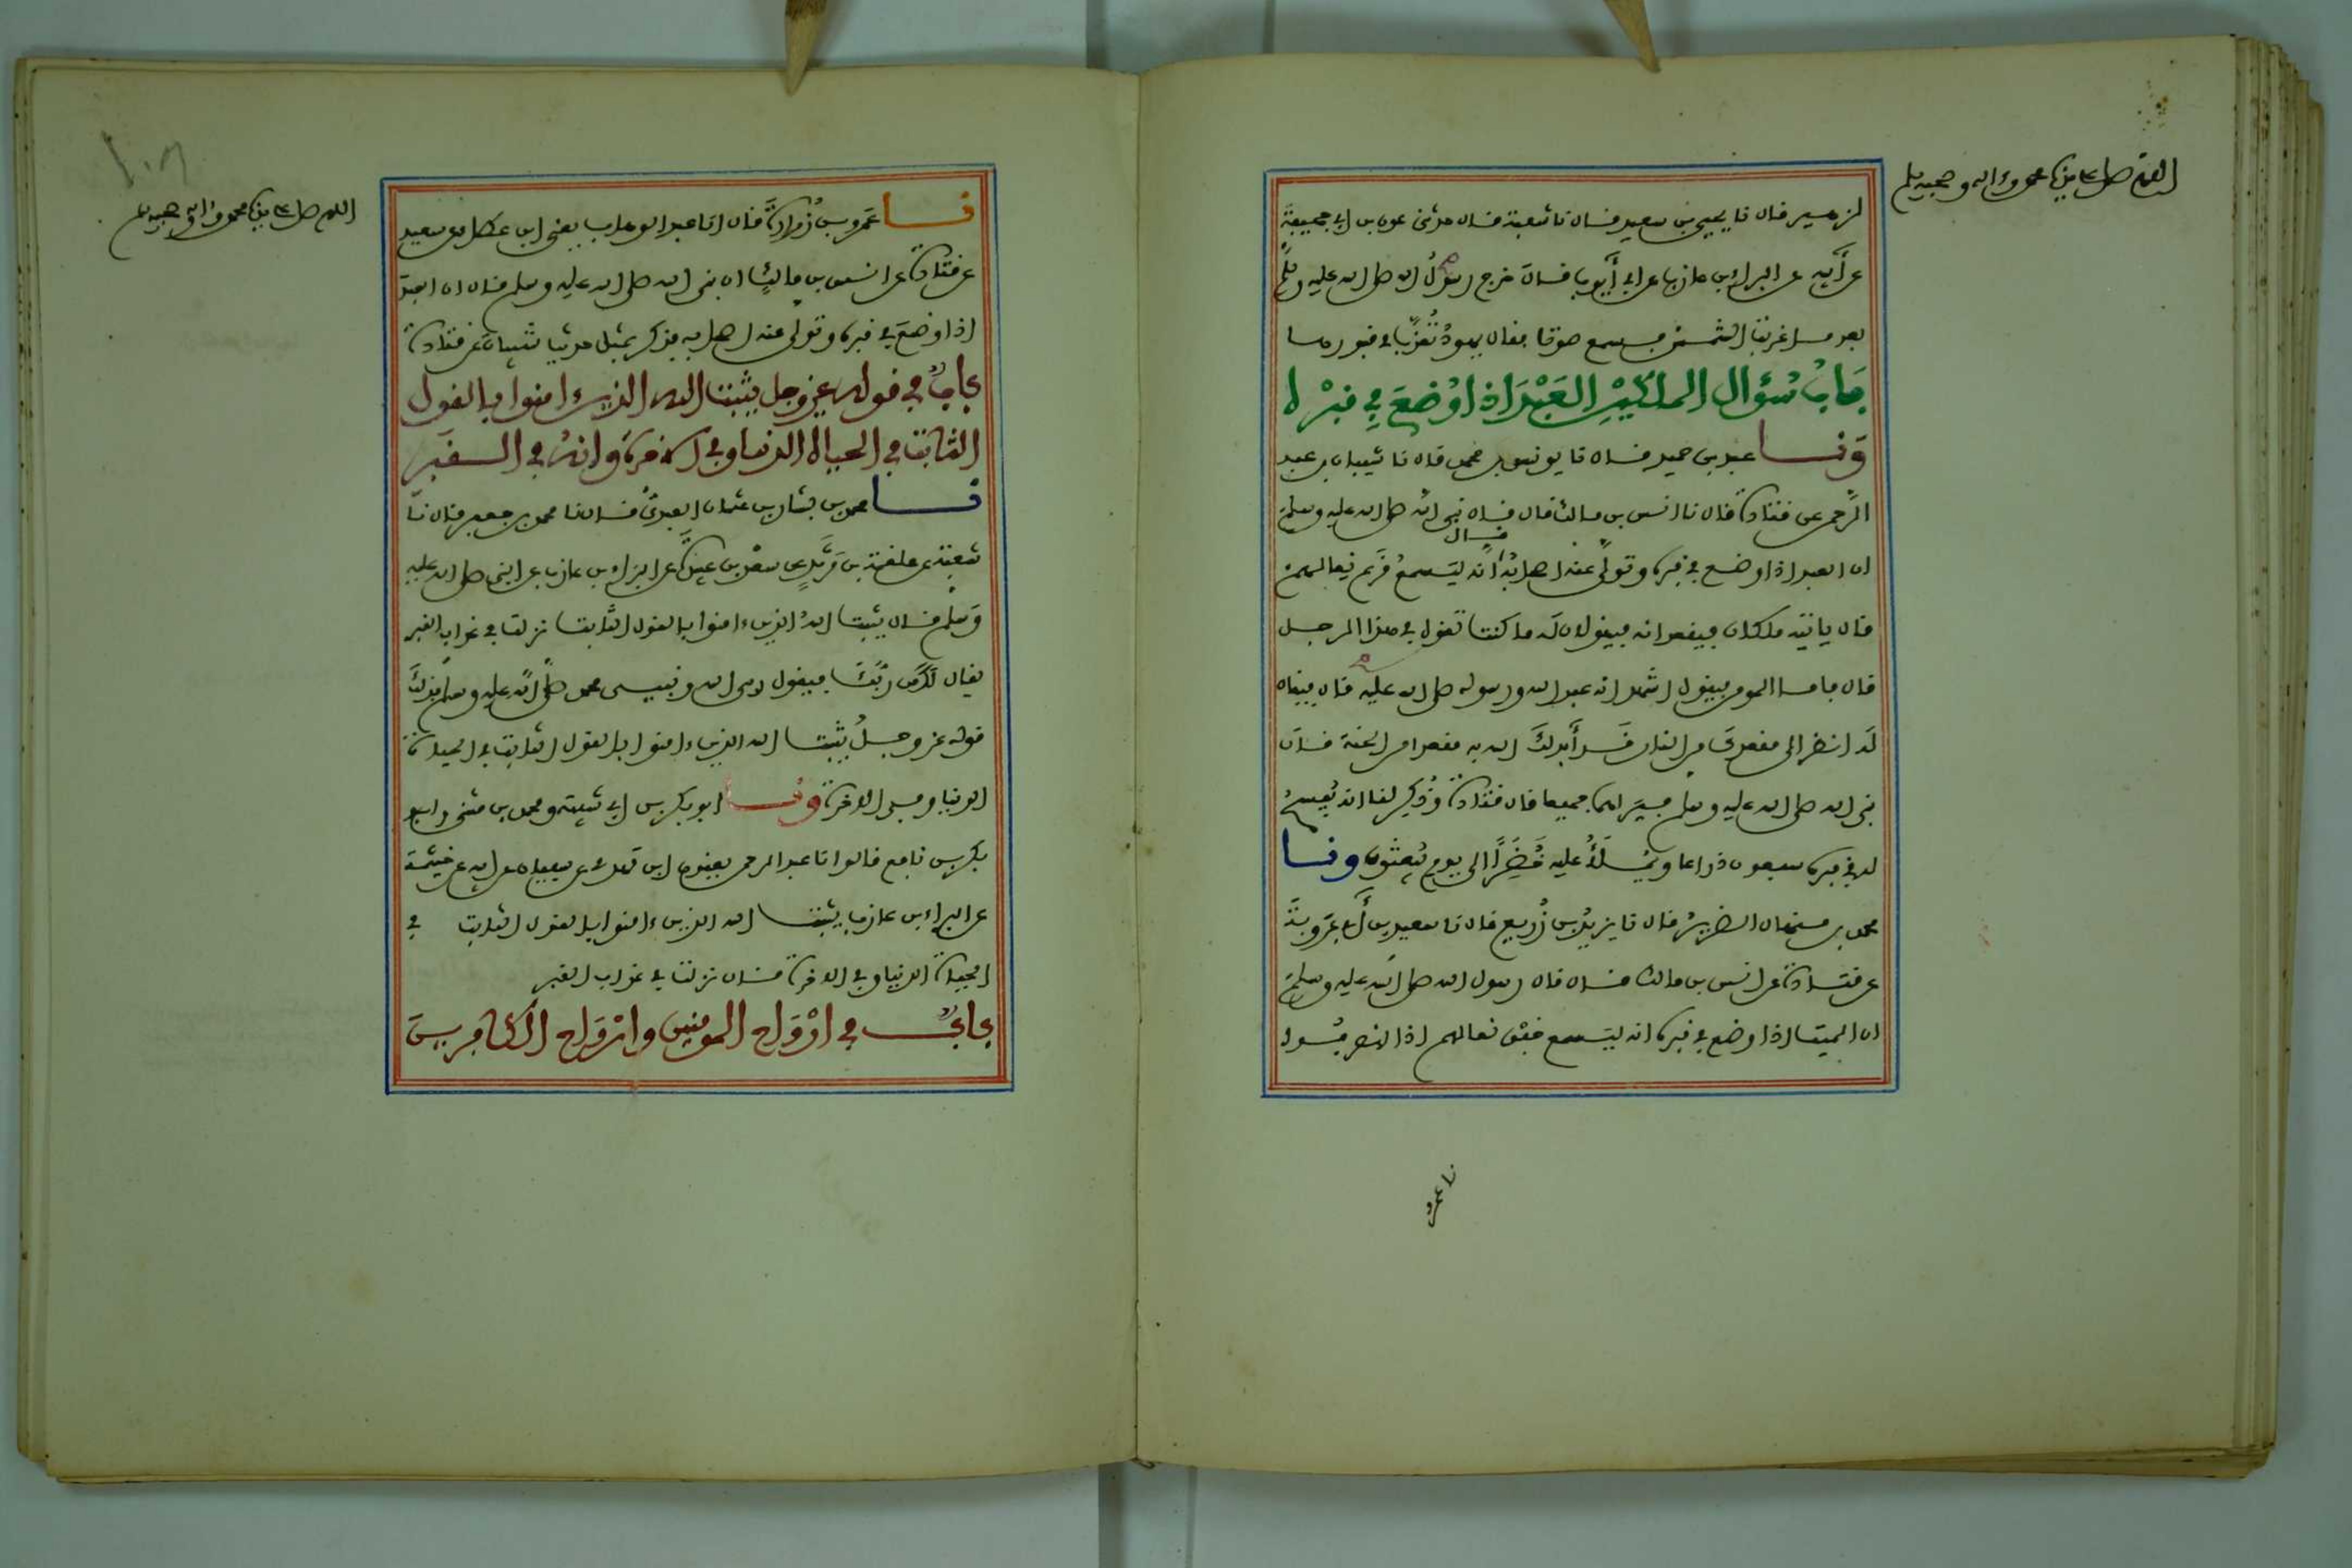 اللهم صل على سيدنا محمد وءاله وصحبه وسلم
لزهير قال نا يحيى بن سعيد قال نا شعبة قال حدثني عون بن ابي جحيفة
عن أبيه عن البراء بن عازب عن ابي أيوب قال خرج رسول الله صلى الله عليه وسلم
بعد ما غربت الشمس فسمع صوتا فقال يهود تعذب في قبورها
باب سؤال الملكين العبد اذا وضع في قبره
ونا عبد بن حميد قال نا يونس بن محمد قال نا شيبان بن عبد
الرحمن عن قتادة قال نا انس بن مالك قال قال نبي الله صلى الله عليه وسلم
ان العبد اذا وضع في قبره وتولى عنه اصحابه انه ليسمع قرع نعالهم
قال
قال ياتيه ملكان فيقعدانه فيقولان له ما كنت تقول في هذا الرجل
قال فاما المومن فيقول اشهد انه عبد الله ورسوله صلى الله عليه قال فيقال
له انظر الى مقعدك من النار قد أبدلك الله به مقعدا من الجنة قال
نبي الله صلى الله عليه وسلم فيراهما جميعا قال قتادة وذكر لنا انه يفسح
له في قبره سبعون ذراعا ويملأ عليه خضرا الى يوم يبعثون ونا
محمد بن منهال الضرير قال نا يزيد بن زريع قال نا سعيد بن أبي عروبة
عن قتادة عن انس بن مالك قال قال رسول الله صلى الله عليه وسلم
ان الميت اذا وضع في قبره انه ليسمع خفق نعالهم اذا انصرفوا
نا عمرو
اللهم صل على سيدنا محمد وءاله وصحبه وسلم
نا عمرو بن زرارة قال انا عبد الوهاب يعني ابن عطاء عن سعيد
عن قتادة عن انس بن مالك ان نبي الله صلى الله عليه وسلم قال ان العبد
اذا وضع في قبره وتولى عنه اصحابه فذكر بمثل حديث شيبان عن قتادة
باب في قوله عز وجل يثبت الله الذين ءامنوا بالقول
الثابت في الحياة الدنيا وفي الاخرة وانه في القبر
نا محمد بن بشار بن عثمان العبدي قال نا محمد بن جعفر قال نا
شعبة عن علقمة بن مرثد عن سعد بن عبيدة عن البراء بن عازب عن النبي صلى الله عليه
وسلم قال يثبت الله الذين ءامنوا بالقول الثابت نزلت في عذاب القبر
يقال له من ربك فيقول ربي الله ونبيي محمد صلى الله عليه وسلم فذلك
قوله عز وجل يثبت الله الذين ءامنوا بالقول الثابت في الحياة
الدنيا وفي الاخرة ونا ابو بكر بن ابي شيبة ومحمد بن مثنى وابو
بكر بن نافع قالوا نا عبد الرحمن يعنون ابن مهدي عن سفيان عن ابيه عن خيثمة
عن البراء بن عازب يثبت الله الذين ءامنوا بالقول الثابت في
الحياة الدنيا وفي الاخرة قال نزلت في عذاب القبر
باب في ارواح المومنين وارواح الكافرين